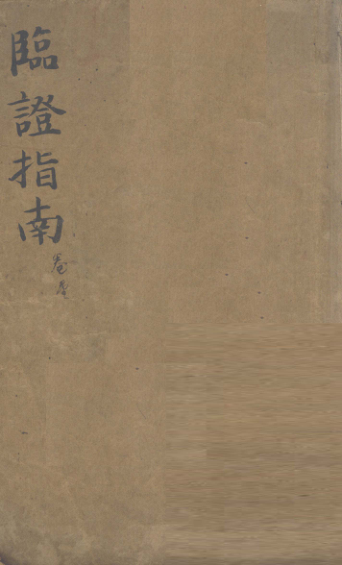 臨證指南
卷